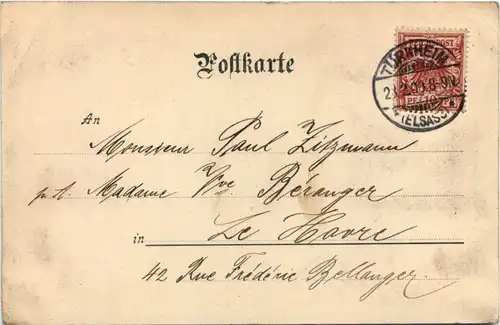 Postkarte
TÜRKHEIM
(ELSASS)
An
Monsieur Paul Zitzmann
Madame Vve Béranger
in Le Havre
42 Rue Frédéric Bellanger.